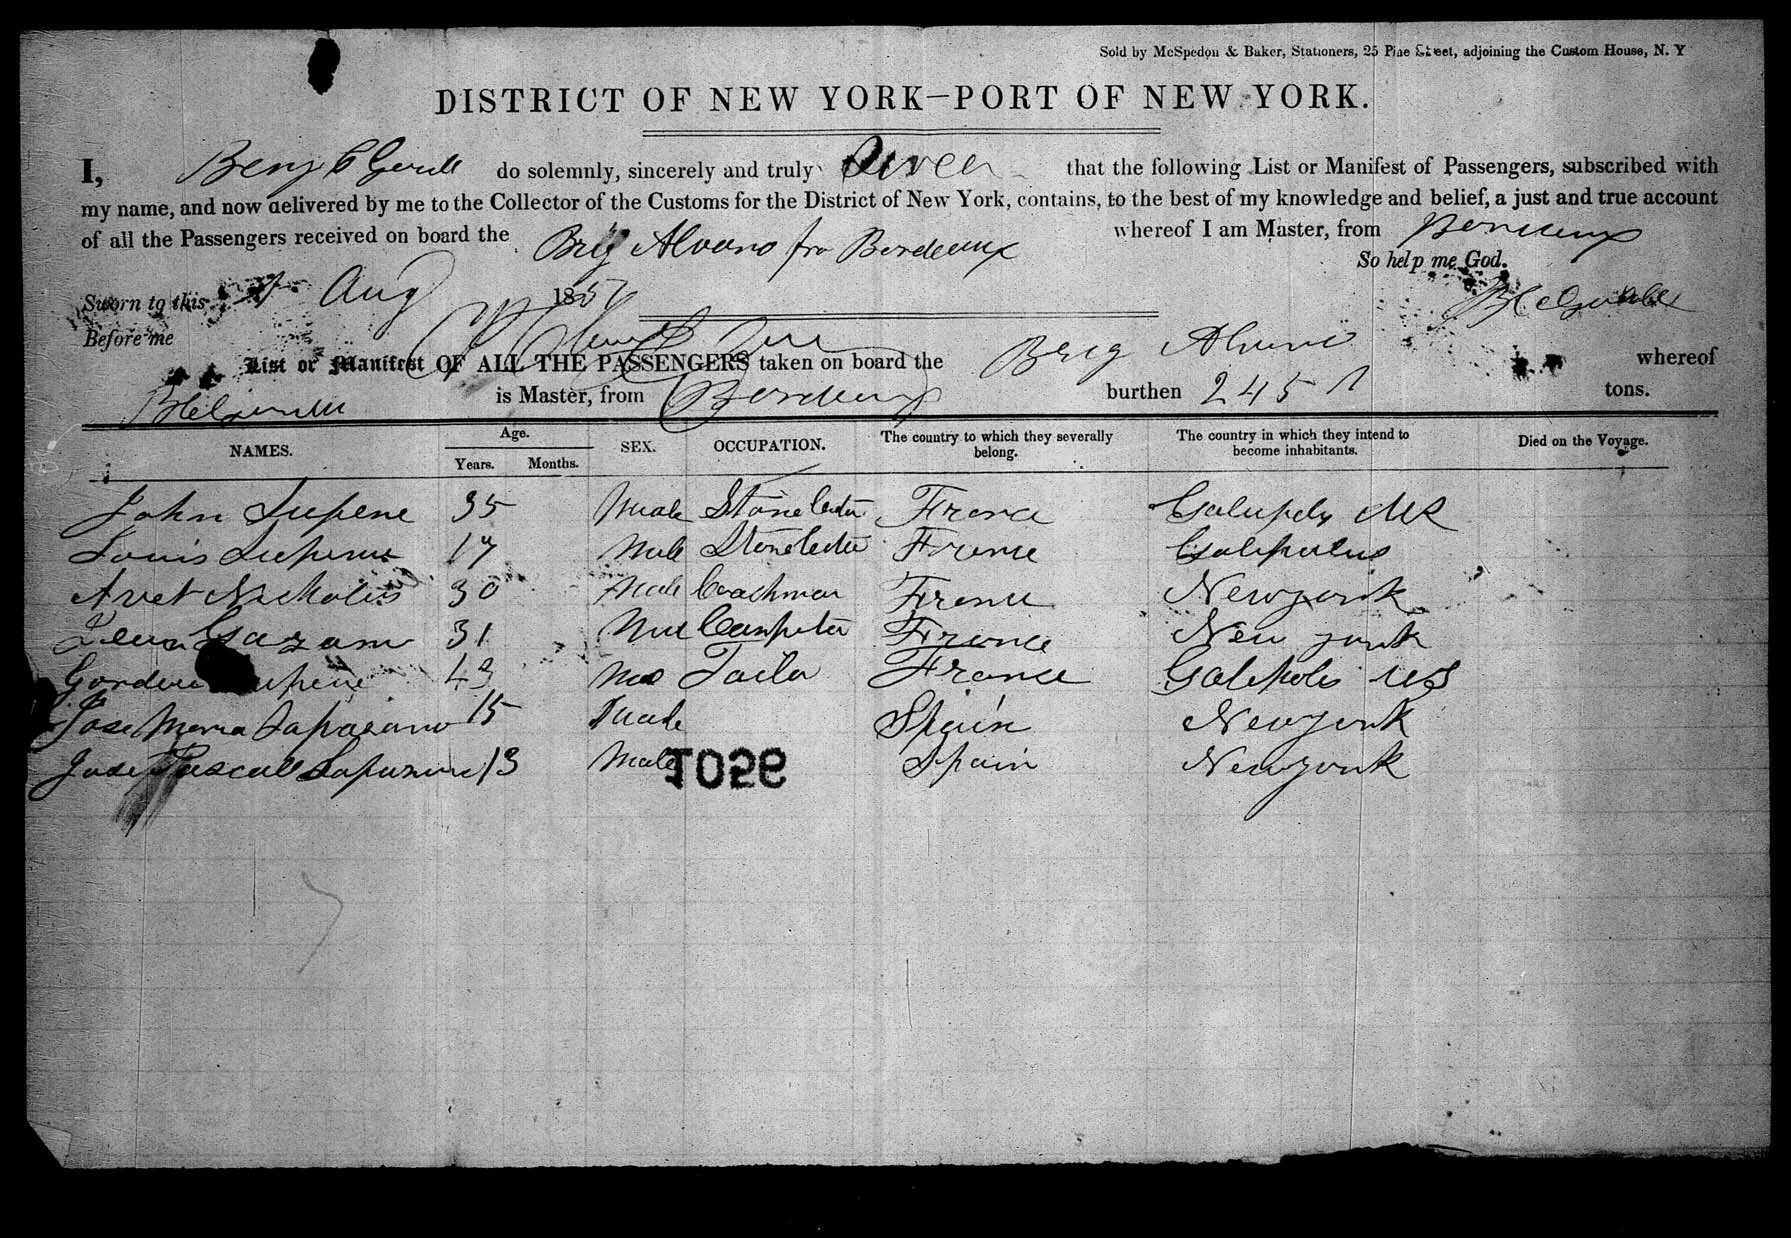 Sold by McSpedon & Baker, Stationers, 25 Pine Street, adjoining the Custom House, N. Y
DISTRICT OF NEW YORK—PORT OF NEW YORK.
I, Benj C Gould do solemnly, sincerely and truly Swear that the following List or Manifest of Passengers, subscribed with
my name, and now delivered by me to the Collector of the Customs for the District of New York, contains, to the best of my knowledge and belief, a just and true account
of all the Passengers received on board the Brig Alvaro fro Bordeaux whereof I am Master, from Bordeaux
So help me God.
Sworn to this Aug 185
Before me
List or Manifest OF ALL THE PASSENGERS taken on board the Brig whereof
is Master, from Bordeaux burthen 245 tons.
NAMES. Age. Years. Months. SEX. OCCUPATION. The country to which they severally belong. The country in which they intend to become inhabitants. Died on the Voyage.
John Lupene 35 Male Stone Cutter France
Louis 17 Male Stonecutter France
Nicholis 30 Male Coachman France Newyork
31 France New york
43 Tailor France Galipolis US
Jose Maria 15 Male Spain Newyork
Jose Pascall 13 Male Spain Newyork
1056